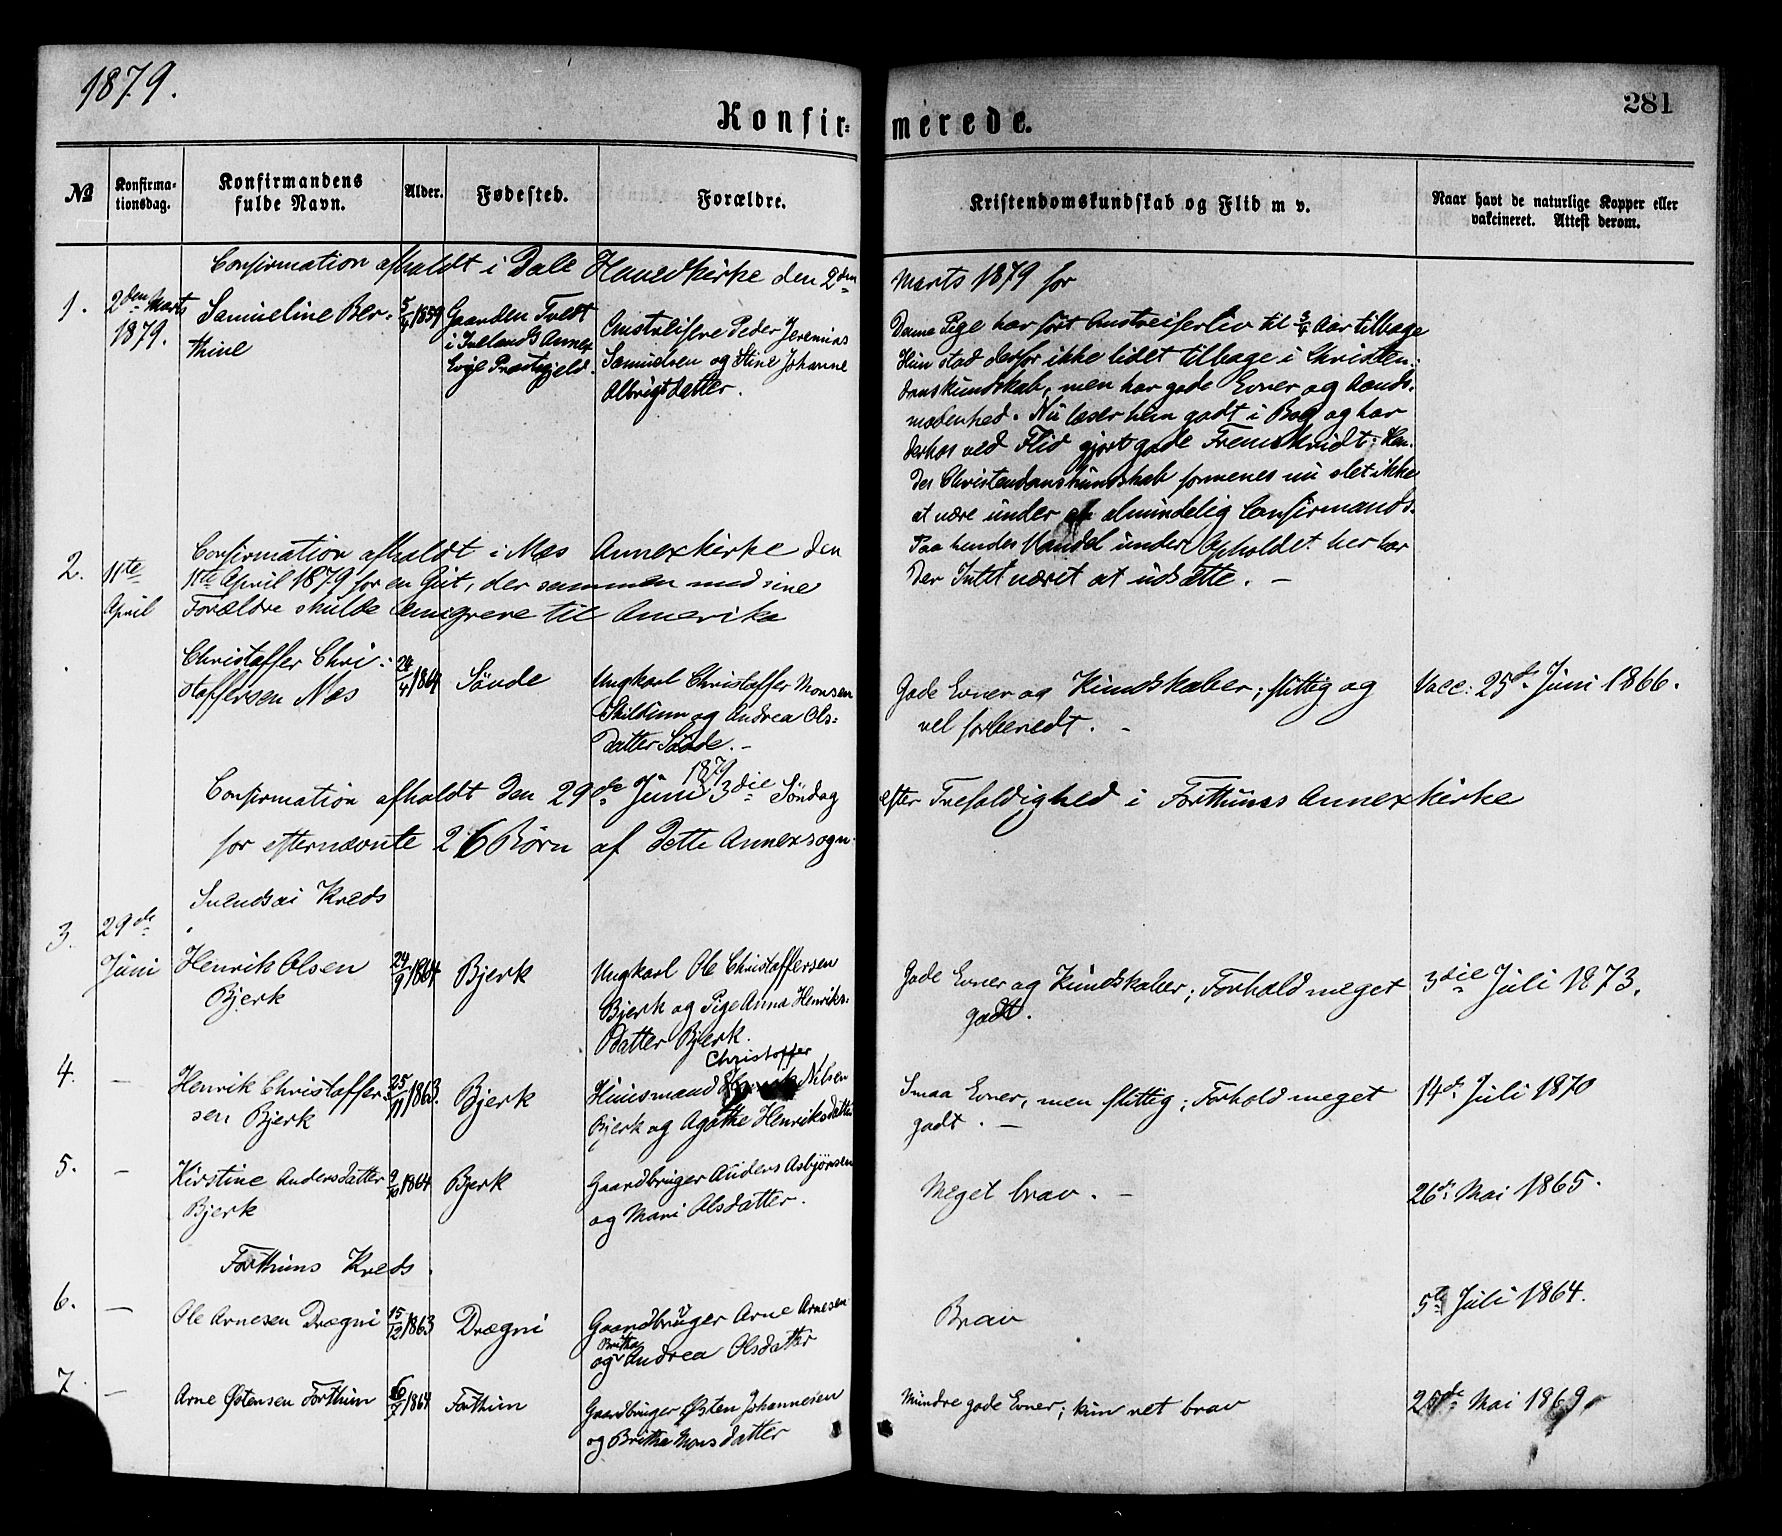 1879.
281
Konfir=
merede.
№
Konfirma-
tionsdag.
Konfirmandens
fulde Navn.
Alder.
Fødested.
Forældre.
Kristendomskundskab og Flid m v.
Naar havt de naturlige Kopper eller
vakcineret. Attest derom.
Confirmation afholdt i Dale Hovedkirke den 2den
Marts 1879 for
1.
2den Marts
1879.
Samueline Ber-
thine
5/4 1859
Gaarden Tvedt
i Ivelands Annex
Evje Præstegjeld.
Omstreifere Peder Jeremias
Samuelsen og Stine Johanne
Albrigtsdatter.
Denne Pige har ført Omstreiferliv til 3/4 Aar tilbage
Hun stod derfor ikke lidet tilbage i Christen-
domskundskab, men har gode Evner og Aands-
modenhed. Nu læser hun godt i Bog og har
derhos ved Flid gjort gode Fremskridt; Hen-
des Christendomskundskab formenes nu slet ikke
at være under almindelig Confirmands.
Paa hendes Vandel under Opholdet her har
der Intet været at udsætte. —
2.
11te
April
Confirmation afholdt i Næs Annexkirke den
11te April 1879 for en Gut, der sammen med sine
Forældre skulde emigrere til Amerika
Christoffer Chri-
stoffersen Næs
24/4 1864
Sövde
Ungkarl Christoffer Monsen
Skildum og Andrea Ols-
datter Sövde. —
Gode Evner og Kundskaber; flittig og
vel forberedt. —
Vacc: 25de Juni 1866.
Confirmation afholdt den 29de Juni 1879 3die Söndag
efter Trefoldighed i Forthuns Annexkirke
for efternævnte 26 Börn af dette Annexsogn.
Kreds
3.
29de
Juni
Henrik Olsen
Bjerk
24/9 1864
Bjerk
Ungkarl Ole Christoffersen
Bjerk og Pige Anna Henriks-
datter Bjerk.
Gode Evner og Kundskaber; Forhold meget
godt.
3die Juli 1873.
4.
—
Henrik Christoffer-
sen Bjerk
25/11 1863.
Bjerk
Christoffer
Huusmand Nilsen
Bjerk og Agathe Henriksdatter
Smaa Evner, men flittig; Forhold meget
godt. —
14de Juli 1870
5.
—
Kirstine Andersdatter
Bjerk
9/10 1864
Bjerk
Gaardbruger Anders Asbjörnsen
og Mari Olsdatter.
Meget brav. —
26de Mai 1865.
Forthuns Kreds.
6.
—
Ole Arnesen Drægni
15/12 1863
Drægni
Gaardbruger Arne Arnesen
Britha
og Andrea Olsdatter
Brav
5te Juli 1864.
7.
—
Arne Østensen Forthun
1864
Forthun
Gaardbruger Østen Johannesen
og Britha Monsdatter
Mindre gode Evner; kun ret brav
25de Mai 1869